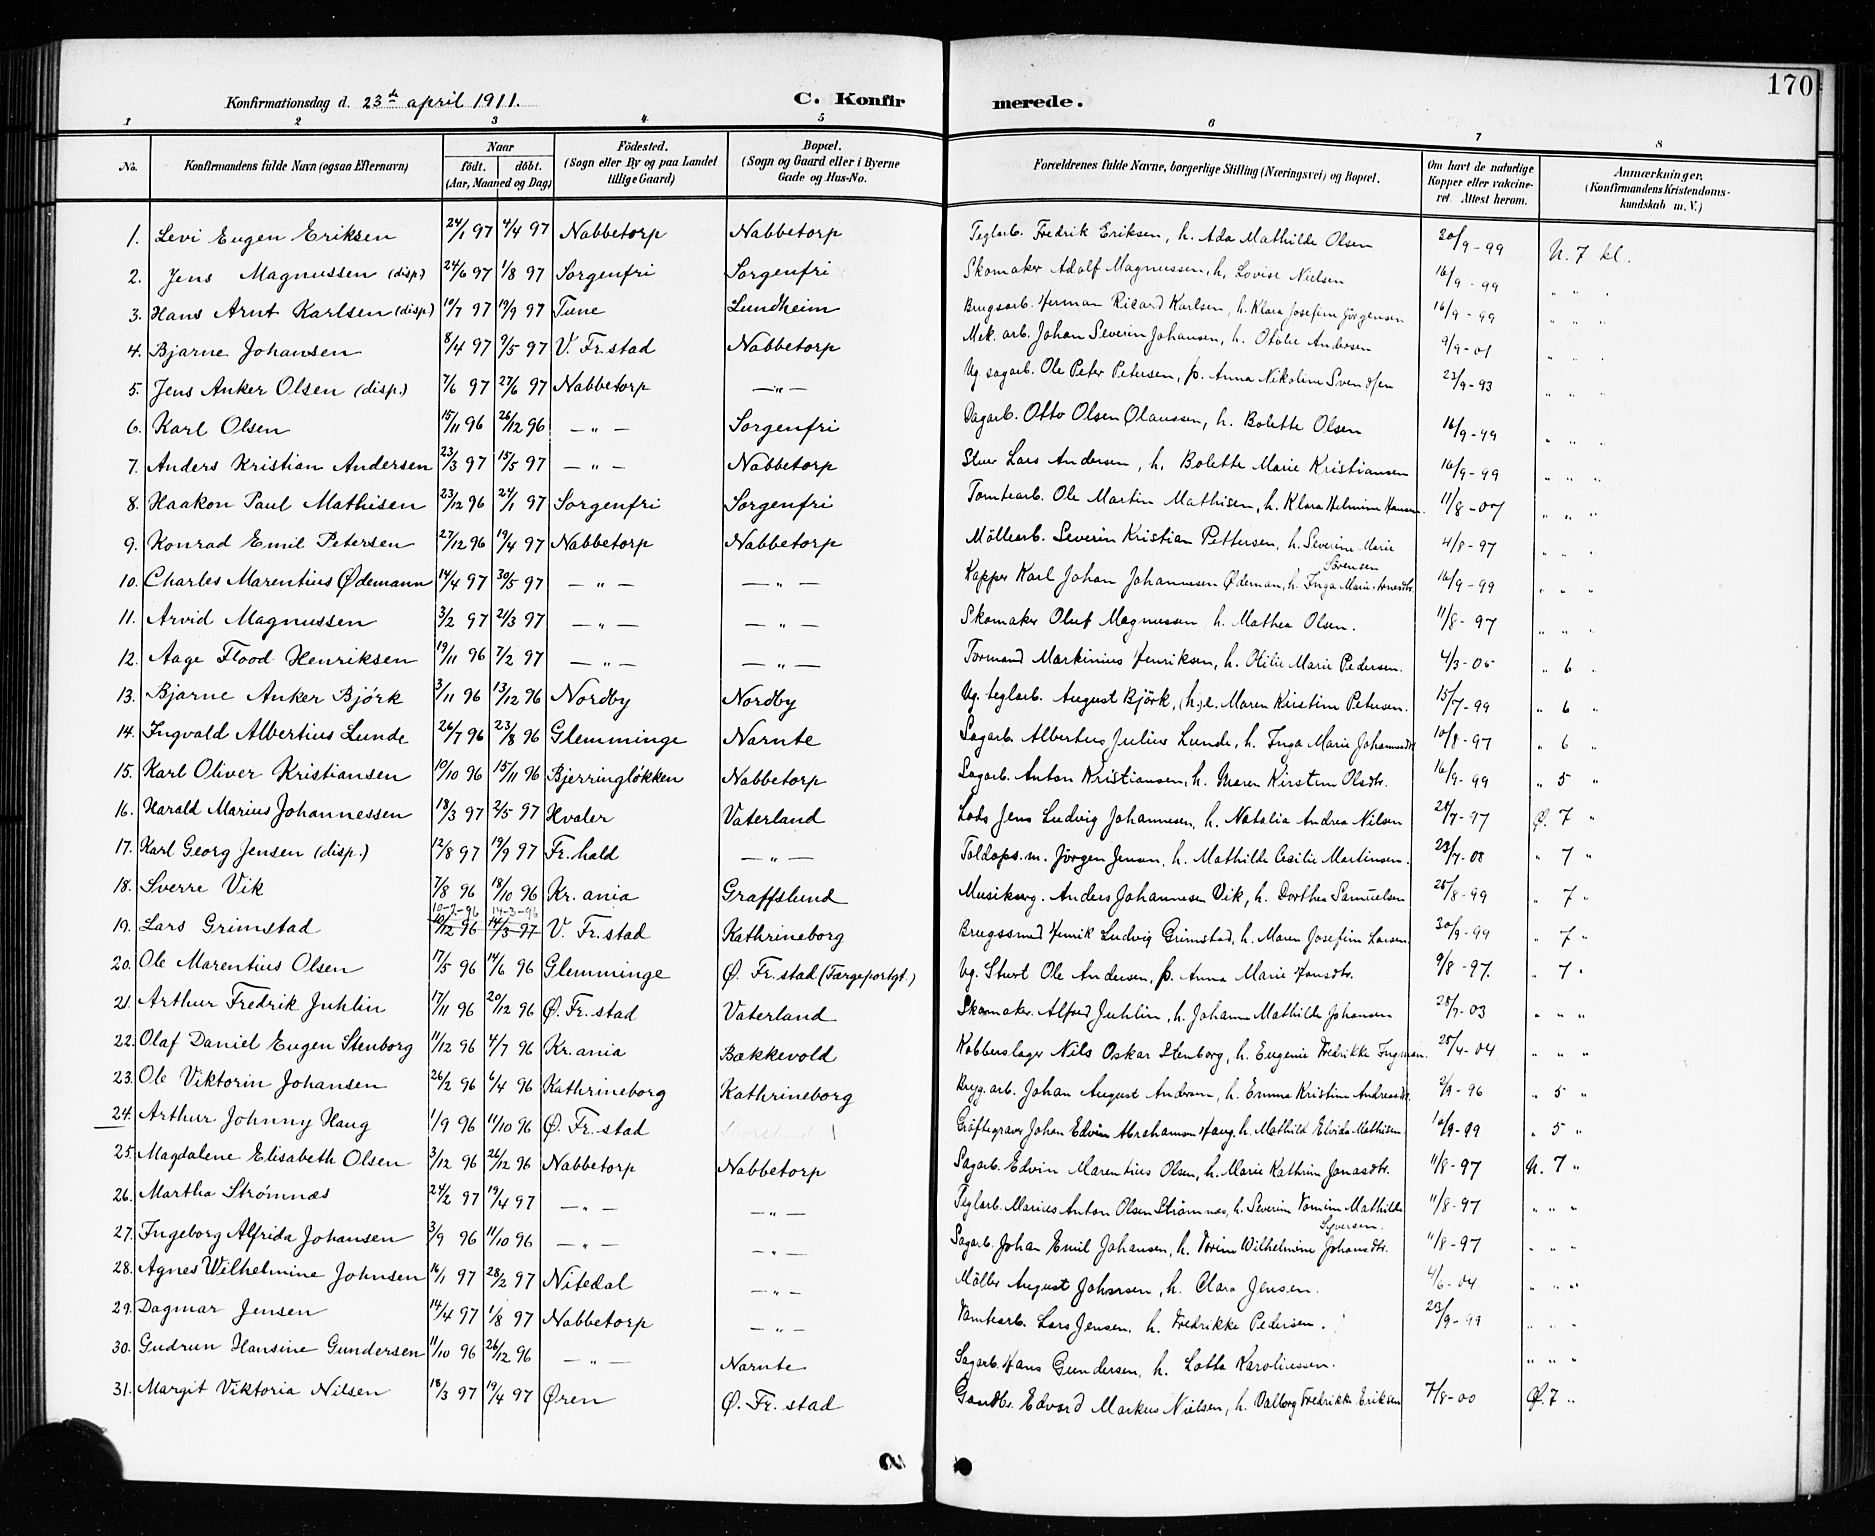 170
Konfirmationsdag d. 23de april 1911. C. Konfirmerede.
1 2 3 4 5 6 7 8
No. Konfirmandens fulde Navn (ogsaa Efternavn) Naar født. døbt. (Aar, Maaned og Dag) Fødested. (Sogn eller By og paa Landet tillige Gaard) Bopæl. (Sogn og Gaard eller i Byerne Gade og Hus-No. Forældrenes fulde Navne, borgerlige Stilling (Næringsvei) og Bopæl. Om havt de naturlige Kopper eller vakcineret. Attest herom. Anmærkninger. (Konfirmandens Kristendomskundskab m. V.)
1. Levi Eugen Eriksen 24/1 97 4/4 97 Nabbetorp Nabbetorp Teglarb. Fredrik Eriksen, h. Ada Mathilde Olsen 30/9-99 N. 7 kl.
2. Jens Magnussen (disp) 24/6 97 1/8 97 Sorgenfri Sorgenfri Skomaker Adolf Magnussen, h. Lovise Nielsen 16/9-99 " " "
3. Hans Arnt Karlsen (disp) 10/7 97 19/9 97 Tune Lundheim Brugsarb. Herman Rikard Karlsen, h. Klara Josefine Jørgensen 16/9-99 " " "
4. Bjarne Johansen 8/4 97 9/5 97 V. Fr.stad Nabbetorp Mek. arb. Johan Severin Johansen, h. Otilie Andersen 9/9-01 " " "
5. Jens Anker Olsen (disp.) 7/6 97 27/6 97 Nabbetorp —"— Ug sagarb. Ole Peter Petersen, p. Anna Nikoline Svendsen 23/9-93 " " "
6. Karl Olsen 15/11 96 26/12 96 —"— Sorgenfri Dagarb. Otto Olsen Olaussen, h. Bolette Olsen 16/9-99 " " "
7. Anders Kristian Andersen 23/3 97 15/5 97 —"— Nabbetorp Stuer Lars Andersen, h. Bolette Marie Kristiansen 16/9-99 " " "
8. Haakon Paul Mathisen 23/12 96 24/1 97 Sorgenfri Sorgenfri Tomtearb. Ole Martin Mathisen, h. Klara Helmine Hansen 11/8-07 " " "
9. Konrad Emil Petersen 27/12 96 19/4 97 Nabbetorp Nabbetorp Møllearb. Severin Kristian Pettersen, h. Severine Marie Sørensen 4/8-97 " " "
10. Charles Marentius Ødemann 14/4 97 30/5 97 —"— —"— Kapper Karl Johan Johannesen Ødeman, h. Inga Marie 16/9-99 " " "
11. Arvid Magnussen 3/2 97 21/3 97 —"— —"— Skomaker Oluf Magnussen h. Mathea Olsen. 11/8-97 " " "
12. Aage Flood Henriksen 19/11 96 7/2 97 —"— —"— Formand Markinius Henriksen, h. Otilie Marie Pedersen. 4/3-05 " 6 "
13. Bjarne Anker Bjørk 3/11 96 13/12 96 Nordby Nordby Ug. teglarb. August Bjørk, (h.) e. Maren Kristine Petersen. 15/7-99 " 6 "
14. Ingvald Albertius Lunde 26/7 96 23/8 96 Glemminge Narnte Sagarb. Albertus Julius Lunde, h. Inga Marie Johannesdtr 10/8-97 " 6 "
15. Karl Oliver Kristiansen 10/10 96 15/11 96 Bjerringløkken Nabbetorp Sagarb. Anton Kristiansen, h. Maren Kirstine Olsdtr. 16/9-99 " 5 "
16. Harald Marius Johannessen 18/3 97 2/5 97 Hvaler Vaterland Lods Jens Ludvig Johannesen, h. Natalia Andrea Nilsen 28/7-97 Ø. 7 "
17. Karl Georg Jensen (disp.) 12/8 97 19/9 97 Fr.hald —"— Toldops.m. Jørgen Jensen, h. Mathilde Cesilie Martinsen. 23/7-08 " 7 "
18. Sverre Vik 7/8 96 18/10 96 Kr.ania Graffslund Musikserg. Anders Johannesen Vik, h. Dorthea Samuelsen 25/8-99 " 7 "
10-2-96 14-3-96
19. Lars Grimstad 10/12 96 14/3 97 V. Fr.stad Kathrineborg Brugssmed Henrik Ludvig Grimstad, h. Maren Josefine Larsen 30/9-99 " 7 "
20. Ole Marentius Olsen 17/5 96 14/6 96 Glemminge Ø. Fr.stad (Færgeportgt.) Ug. Sturt Ole Andersen, p. Anna Marie Hansdtr. 9/8-97. " 7 "
21. Arthur Fredrik Juhlin 17/11 96 20/12 96 Ø. Fr.stad Vaterland Skomaker. Alfred Juhlin, h. Johanne Mathilde Johansen 28/7-03 " " "
22. Olaf Daniel Eugen Stenborg 11/12 96 4/7 96 Kr.ania Bækkevold Kobberslager Nils Oskar Stenborg, h. Eugenie Fredrikke Ingman. 25/4-04 " " "
23. Ole Viktorin Johansen 26/2 96 6/4 96 Kathrineborg Kathrineborg Bryg.arb. Johan August Andersen, h. Emma Kristine Andreasdtr. 2/9-96 " 5 "
24. Arthur Johnny Haug 1/9 96 11/10 96 Ø. Fr.stad Grøftegraver Johan Edvin Abrahamson Haug, h. Mathilde Elvida Mathisen 16/9-99 " 5 "
25. Magdalene Elisabeth Olsen 3/12 96 26/12 96 Nabbetorp Nabbetorp Sagarb. Edvin Marentius Olsen, h. Marie Kathrine Jonasdtr. 11/8-97 N. 7 "
26. Martha Strømnæs 24/2 97 19/4 97 —"— —"— Teglarb. Marius Anton Olsen Strømnæs, h. Severine Tomine Mathilde Syversen. 11/8-97 " " "
27. Ingeborg Alfrida Johansen 3/9 96 11/10 96 —"— —"— Sagarb. Johan Emil Johansen, h. Torine Wilhelmine Johansdtr. 11/8-97 " " "
28. Agnes Wilhelmine Johnsen 16/1 97 28/2 97 Nitedal —"— Møller August Johnsen, h. Clara Jensen. 4/6-04 " " "
29. Dagmar Jensen 14/4 97 1/8 97 Nabbetorp —"— Tomtearb. Lars Jensen, h. Fredrikke Pedersen. 23/9-99 " " "
30. Gudrun Hansine Gundersen 11/10 96 26/12 96 —"— Narnte Sagarb. Hans Gundersen, h. Lotta Karoliussen. " " "
31. Margit Viktoria Nilsen 18/3 97 19/4 97 Øren Ø. Fr.stad Edvard Markus Nielsen, h. Valborg Fredrikke Eriksen 7/8-00 Ø. 7 "